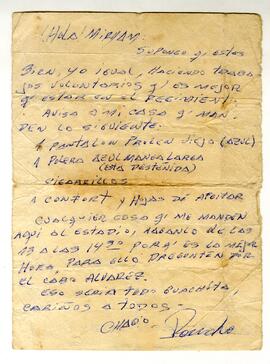 ¡HOLA! MIRIAM:
SUPONGO q' ESTES
BIEN, YO IGUAL, HACIENDO TRABA
JOS VOLUNTARIOS q' ES MEJOR
q' ESTAR EN EL
AVISA A MI CASA q' MAN
DEN LO SIGUIENTE:
PANTALON VIEJO (AZUL)
POLERA AZUL MANGA LARGA
(ESTA DESTEÑIDA)
CIGARRILLOS
CONFORT y HOJAS DE AFEITAR
CUALQUIER COSA q' ME MANDEN
AQUI AL ESTADIO, HAGANLO DE LAS
13 A LAS 14 30 PORQ' ES LA MEJOR
HORA, PARA ELLO PREGUNTEN POR
EL CABO ALVAREZ.
ESO SERIA TODO GUACHITA
CARIÑOS A TODOS.-
CHAO.